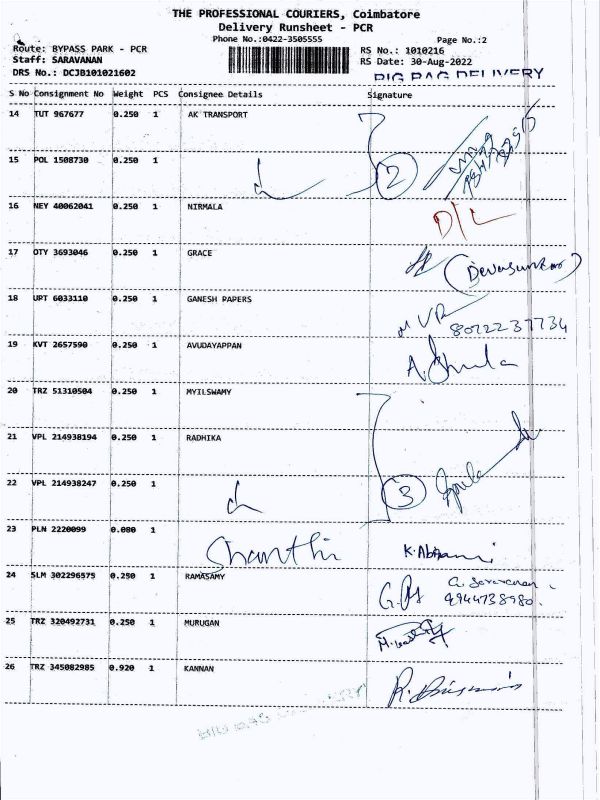 THE PROFESSIONAL COURIERS, Coimbatore
Delivery Runsheet - PCR
Phone No.:0422-3505555
Page No.:2
Route: BYPASS PARK - PCR
RS No.: 1010216
Staff: SARAVANAN
RS Date: 30-Aug-2022
DRS No.: DCJB101021602
BIG BAG DELIVERY
S No Consignment No Weight PCS Consignee Details Signature
14 TUT 967677 0.250 1 AK TRANSPORT
15 POL 1508730 0.250 1
2
16 NEY 40062041 0.250 1 NIRMALA
D/L
17 OTY 3693046 0.250 1 GRACE
18 UPT 6033110 0.250 1 GANESH PAPERS
19 KVT 2657590 0.250 1 AVUDAYAPPAN
20 TRZ 51310504 0.250 1 MYILSWAMY
21 VPL 214938194 0.250 1 RADHIKA
22 VPL 214938247 0.250 1
3
23 PLN 2220099 0.080 1
Shanthi
24 SLM 302296575 0.250 1 RAMASAMY
25 TRZ 320492731 0.250 1 MURUGAN
26 TRZ 345082985 0.920 1 KANNAN